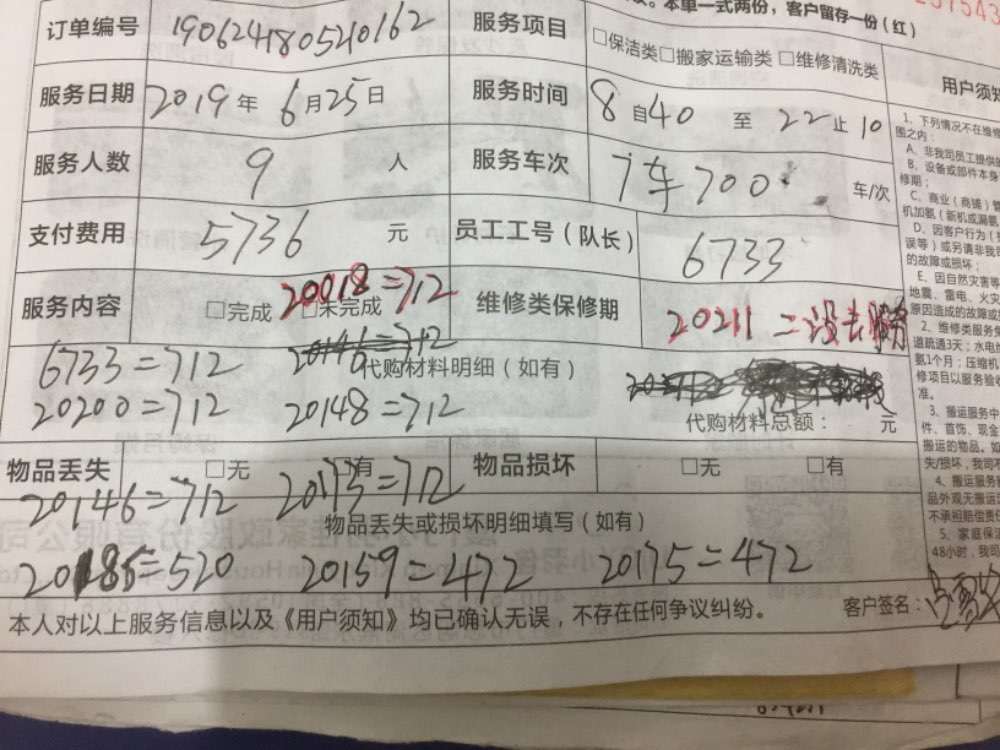 本单一式两份，客户留存一份（红）
订单编号 190624180520162 服务项目 □保洁类□搬家运输类□维修清洗类
服务日期 2019年 6月25日 服务时间 8自40 至 22止10
服务人数 9 人 服务车次 7车700 车/次
支付费用 5736 元 员工工号（队长） 6733
服务内容 □完成 □未完成 20018=712 维修类保修期 20211=没去服务
6733=712 20146=712
代购材料明细（如有）
20200=712 20148=712 代购材料总额： 元
物品丢失 □无 □有 物品损坏 □无 □有
20146=712 20173=712
物品丢失或损坏明细填写（如有）
20185=520 20159=472 20175=472
本人对以上服务信息以及《用户须知》均已确认无误，不存在任何争议纠纷。 客户签名：
用户须知
1、下列情况不在维修
围之内：
A、非我司员工提供的
B、设备或部件本身
修期；
C、商业（商铺）
机加氨（新机或漏氨
D、因客户行为（
误等）或另请非我司
的故障或损坏；
E、因自然灾害等
地震、雷电、火灾
原因造成的故障或
2、维修类服务保
道疏通3天；水电维
氨1个月；压缩机
修项目以服务验收
准。
3、搬运服务中
件、首饰、现金
搬运的物品。如
失/损坏，我司不
4、搬运服务
品外观无搬运
不承担赔偿责任
5、家庭保洁
48小时，我司